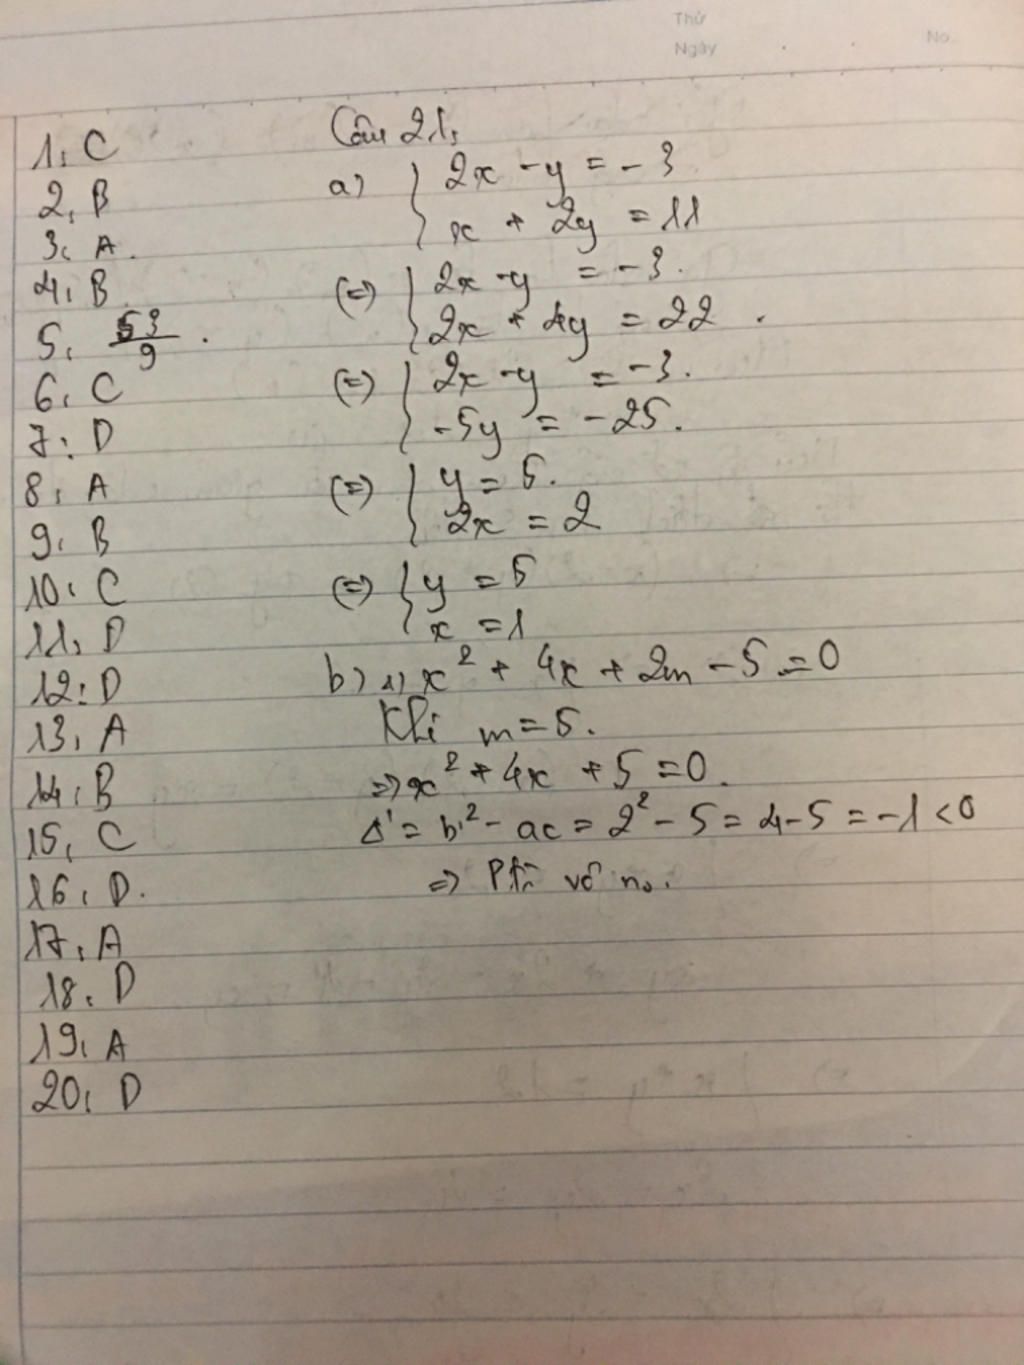 Thứ
Ngày
No.
1, C
2, B
3, A.
4, B
5, 53/9.
6, C
7: D
8, A
9, B
10, C
11, D
12: D
13, A
14, B
15, C
16, D.
17, A
18, D
19, A
20, D
Câu 21,
a) { 2x - y = -3
x + 2y = 11
(=) { 2x - y = -3.
2x + 4y = 22.
(=) { 2x - y = -3.
-5y = -25.
(=) { y = 5.
2x = 2
(=) { y = 5
x = 1
b) 1) x² + 4x + 2m - 5 = 0
Khi m = 5.
=> x² + 4x + 5 = 0.
Δ' = b'² - ac = 2² - 5 = 4 - 5 = -1 < 0
=> Ptr vô no.